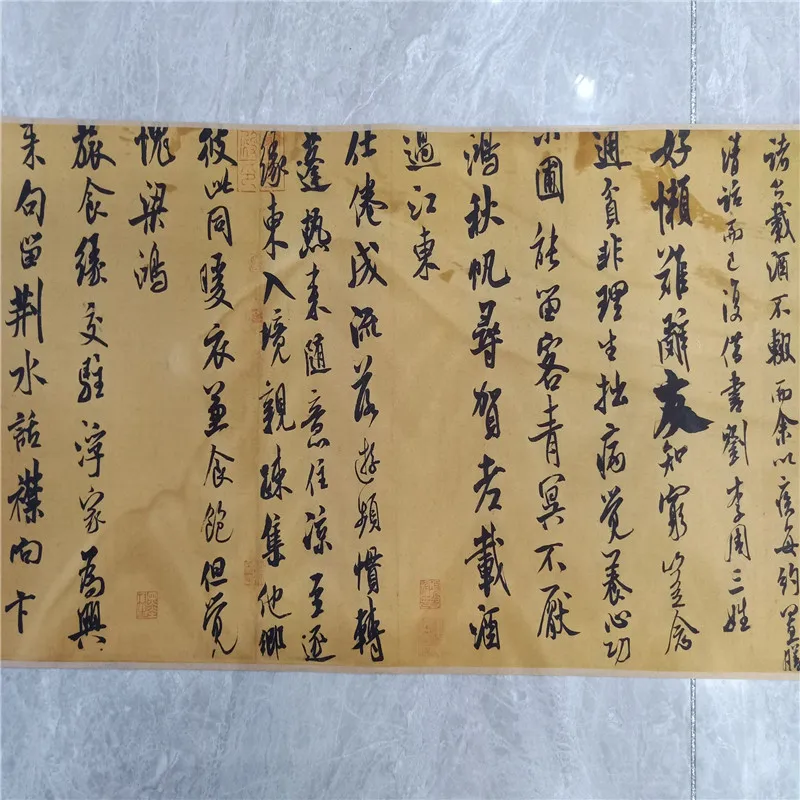 諸公載酒不輟而余以疾每約置膳
清話而已復借書劉李周三姓
好懶難辭友知窮豈念
通貧非理生拙病覺養心功
小圃能留客青冥不厭
鴻秋帆尋賀老載酒
過江東
仕倦成流落遊頻慣轉
蓬熱來隨意住涼至逐
緣東入境親疎集他鄉
彼此同暖衣兼食飽但覺
愧梁鴻
旅食緣交駐浮家為興
來句留荊水話襟向卞